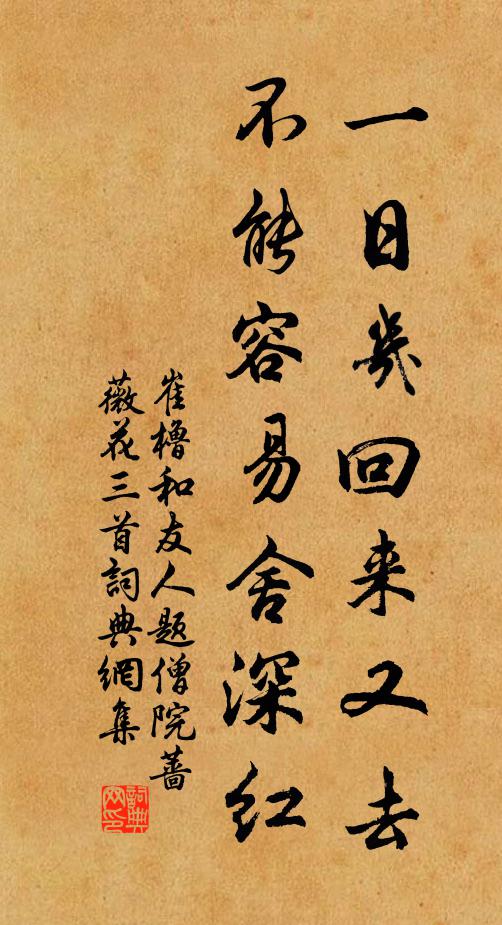 一日幾回来又去
不能容易舍深红
崔櫓和友人题僧院蔷
薇花三首詞典網集
詞典网印